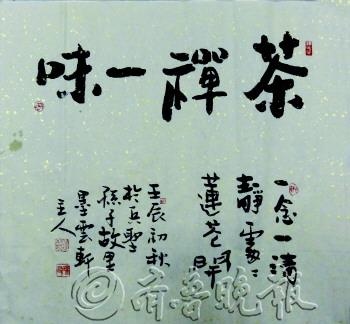 茶禪一味
一念一清
靜處〻
蓮花開
壬辰初秋
於兵聖
孫子故里
墨雲軒
主人
齊魯晚報